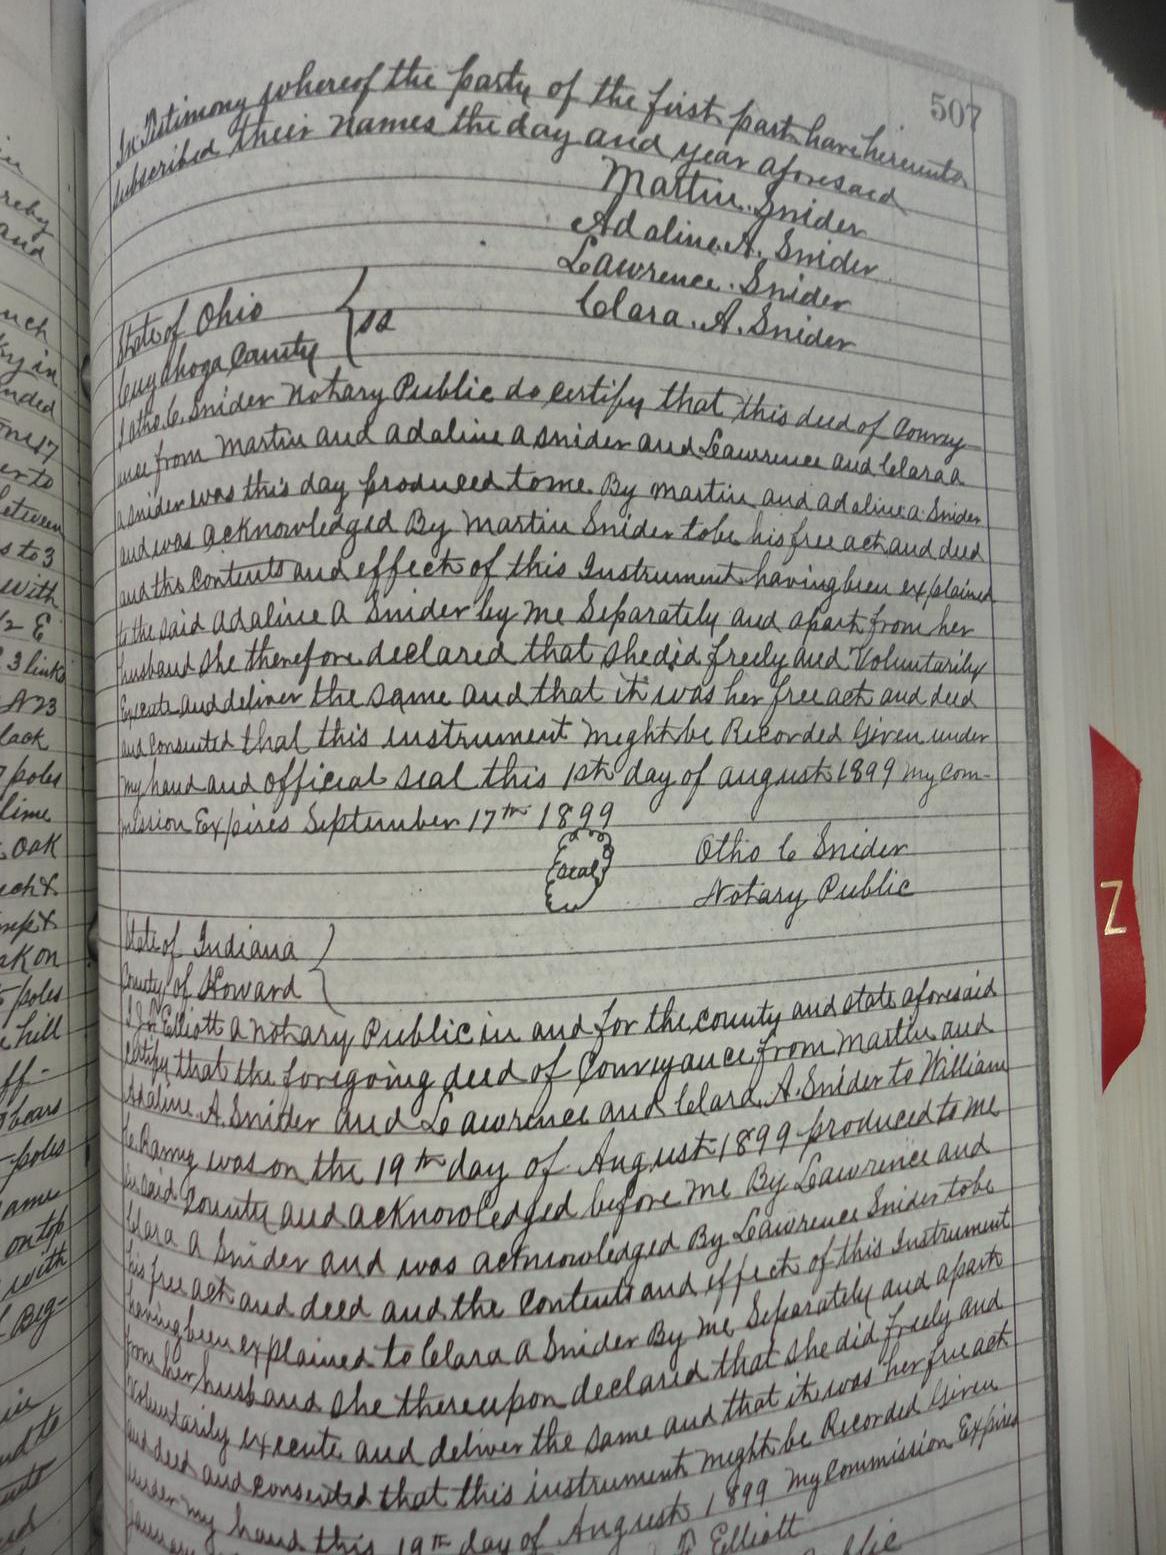 507
In Testimony whereof the party of the first part have hereunto
subscribed their names the day and year aforesaid
Martin Snider
Adaline A. Snider
Lawrence Snider
Clara A. Snider
State of Ohio
Cuyahoga County ss
I Otho C. Snider Notary Public do certify that this deed of Convey
ance from Martin and adaline a snider and Leawrence and Clara a
a snider was this day produced to me By Martin and adaline a Snider
and was acknowledged By Martin Snider to be his free act and deed
and the Contents and effect of this Instrument having been explained
to the said Adaline A Snider by me Separately and apart from her
husband she therefore declared that she did freely and Voluntarily
Execute and deliver the same and that it was her free act and deed
and Consented that this instrument meght be Recorded Given under
my hand and official seal this 1st day of august 1899 my Com-
mission Expires September 17th 1899
Seal
Otho C Snider
Notary Public
State of Indiana
County of Howard
Elliott a Notary Public in and for the county and state aforesaid
certify that the foregoing deed of Conveyance from Martin and
Adaline A. Snider and Leawrence and Clara A. Snider to William
Ramy was on the 19th day of August 1899 produced to me
in said County and acknowledged before me By Leawrence and
Clara A Snider and was acknowledged By Leawrence Snider to be
his free act and deed and the Contents and effect of this Instrument
having been explained to Clara A Snider By me Separately and apart
from her husband she thereupon declared that she did freely and
voluntarily execute and deliver the same and that it was her free act
and deed and consented that this instrument might be Recorded Given
under my hand this 19th day of August 1899 My commission Expires
Elliott
Z
reby
and
uch
ky in
nded
er to
between
s to 3
with
1/2 E
3 links
N 23
lack
poles
lime
oak
poles
hill
poles
on top
with